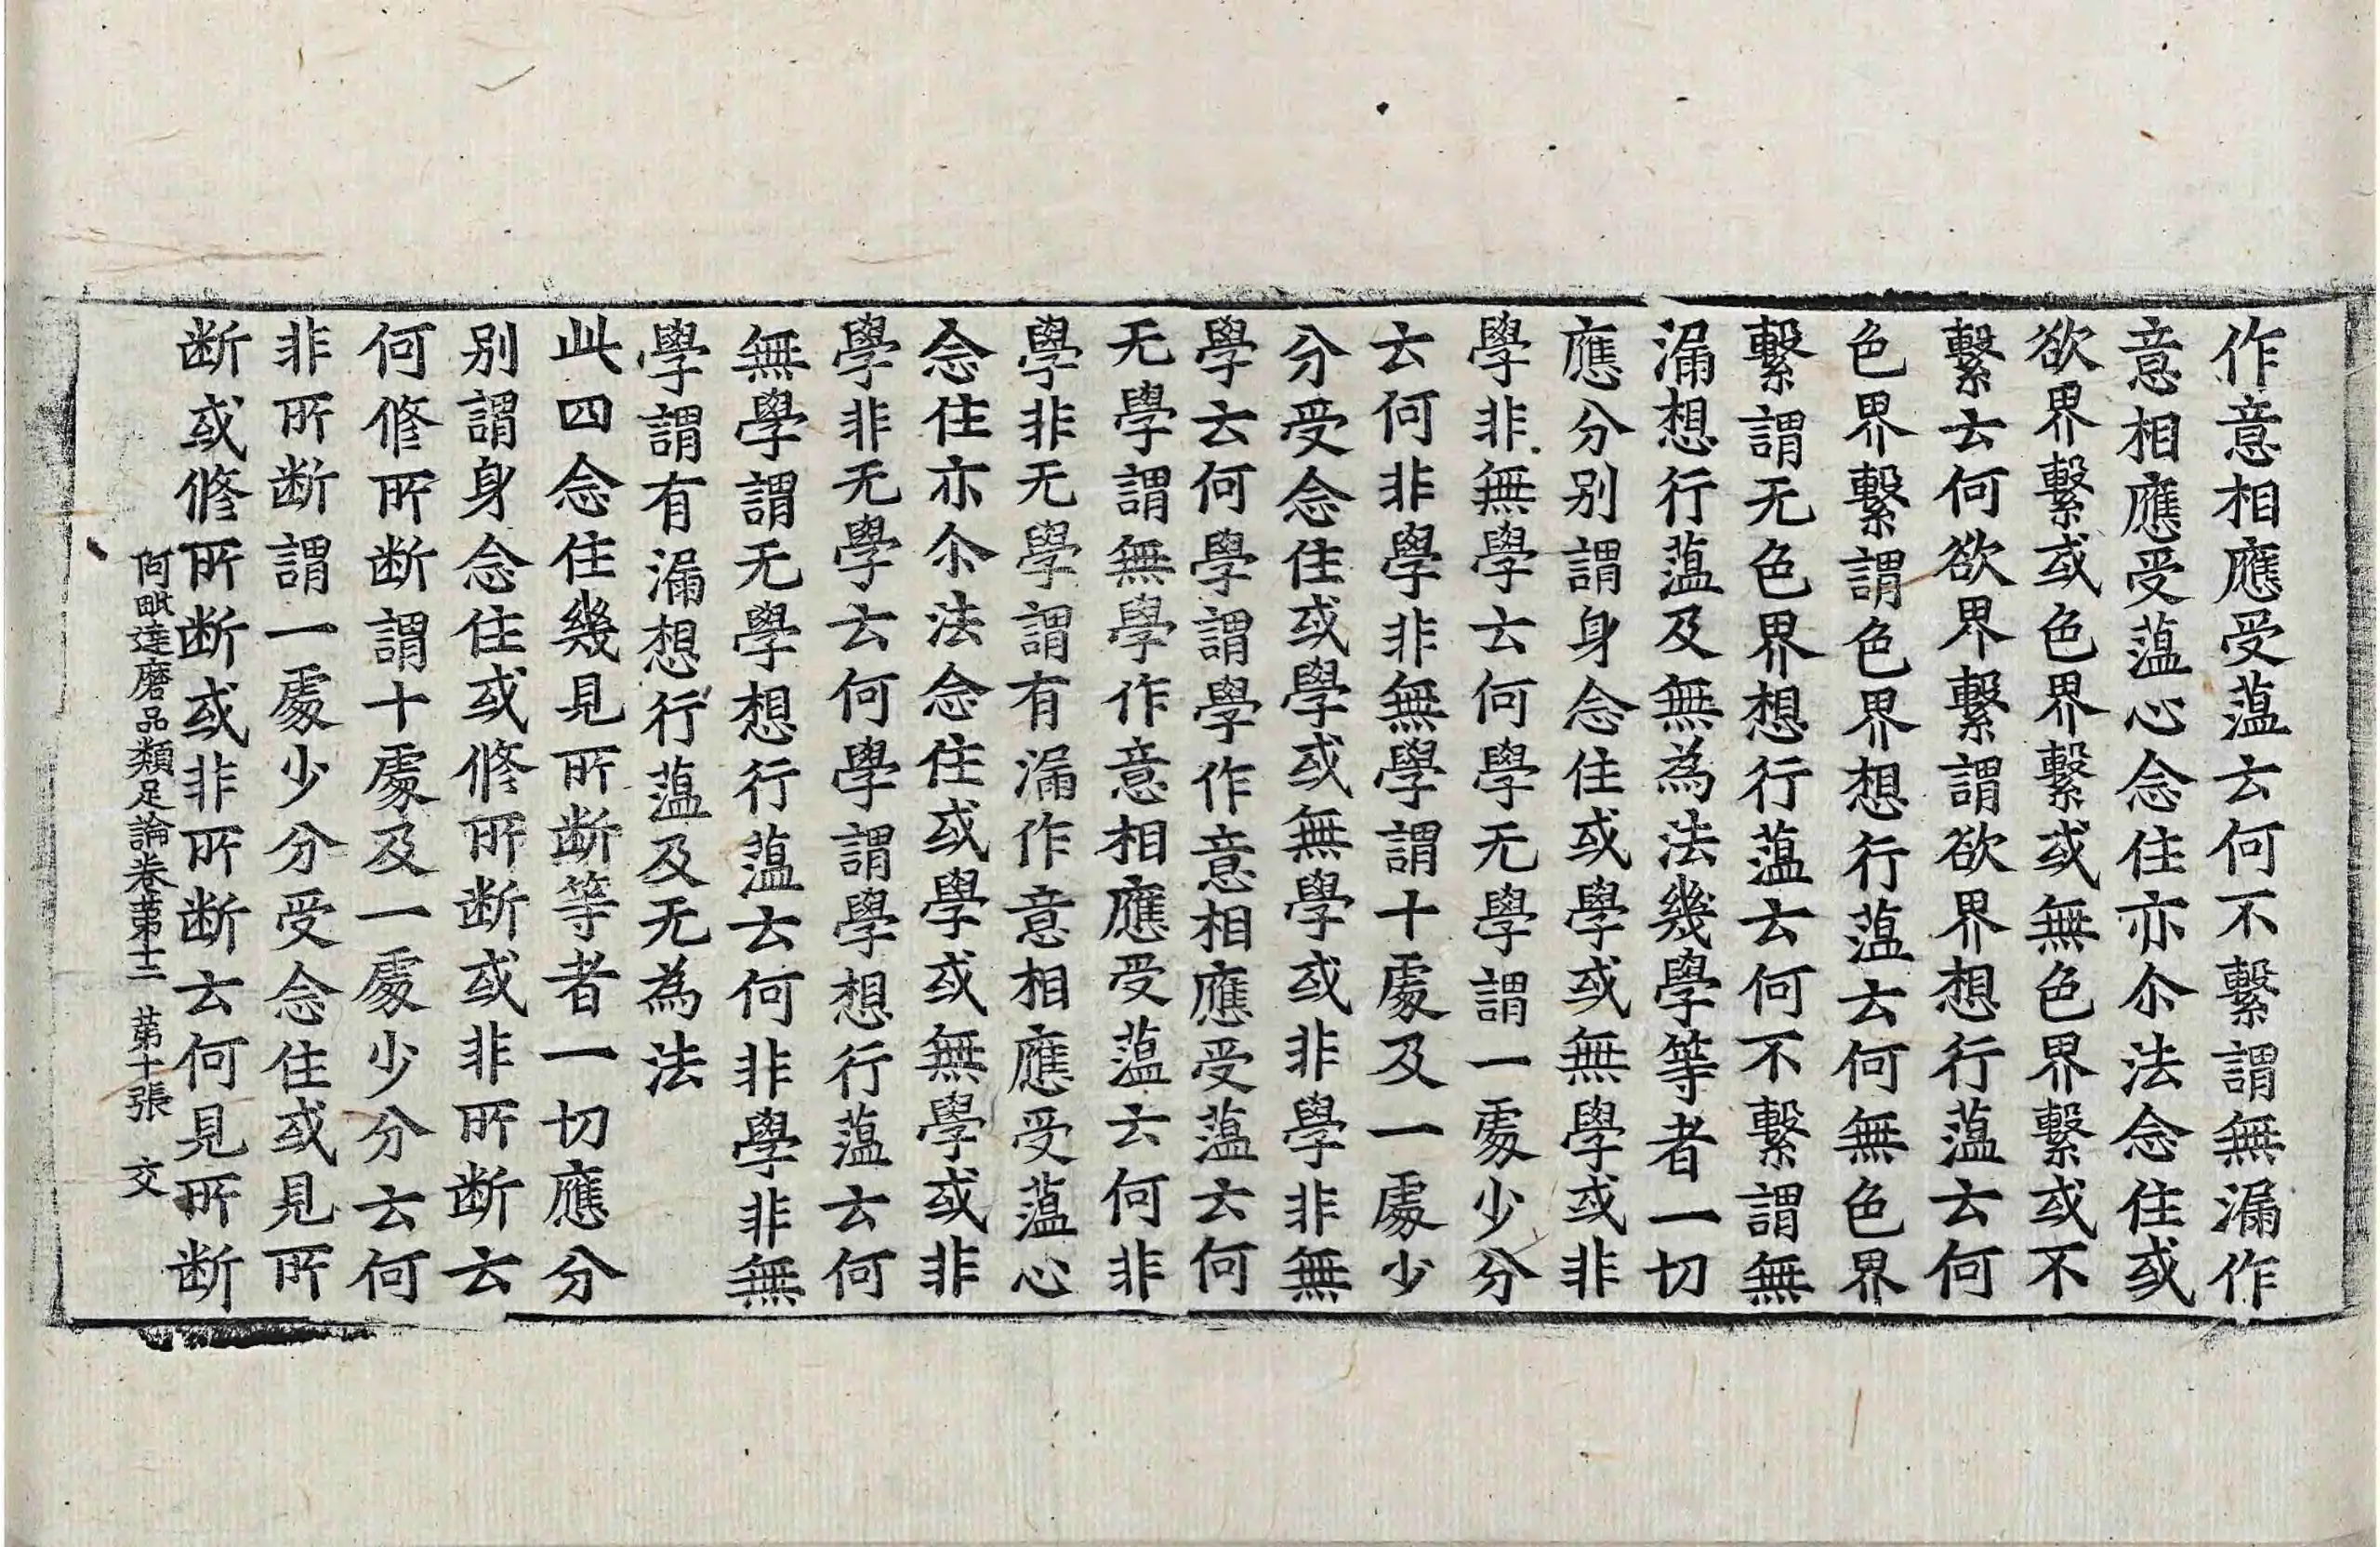 作意相應受蕰云何不繫謂無漏作
意相應受蕰心念住亦尒法念住或
欲界繫或色界繫或無色界繫或不
繫云何欲界繫謂欲界想行蕰云何
色界繫謂色界想行蕰云何無色界
繫謂无色界想行蕰云何不繫謂無
漏想行蕰及無為法幾學等者一切
應分別謂身念住或學或無學或非
學非無學云何學无學謂一處少分
云何非學非無學謂十處及一處少
分受念住或學或無學或非學非無
學云何學謂學作意相應受蕰云何
无學謂無學作意相應受蕰云何非
學非无學謂有漏作意相應受蕰心
念住亦尒法念住或學或無學或非
學非无學云何學謂學想行蕰云何
無學謂无學想行蕰云何非學非無
學謂有漏想行蕰及无為法
此四念住幾見所断等者一切應分
别謂身念住或修所断或非所断云
何修所断謂十處及一處少分云何
非所断謂一處少分受念住或見所
断或修所断或非所断云何見所断
阿毗達磨品類足論卷苐十二 苐十張 交